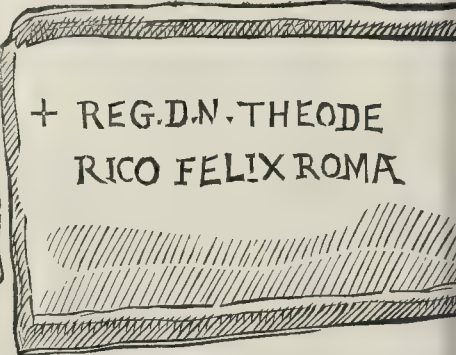 + REG.D.N.THEODE
RICO FELIX ROMA